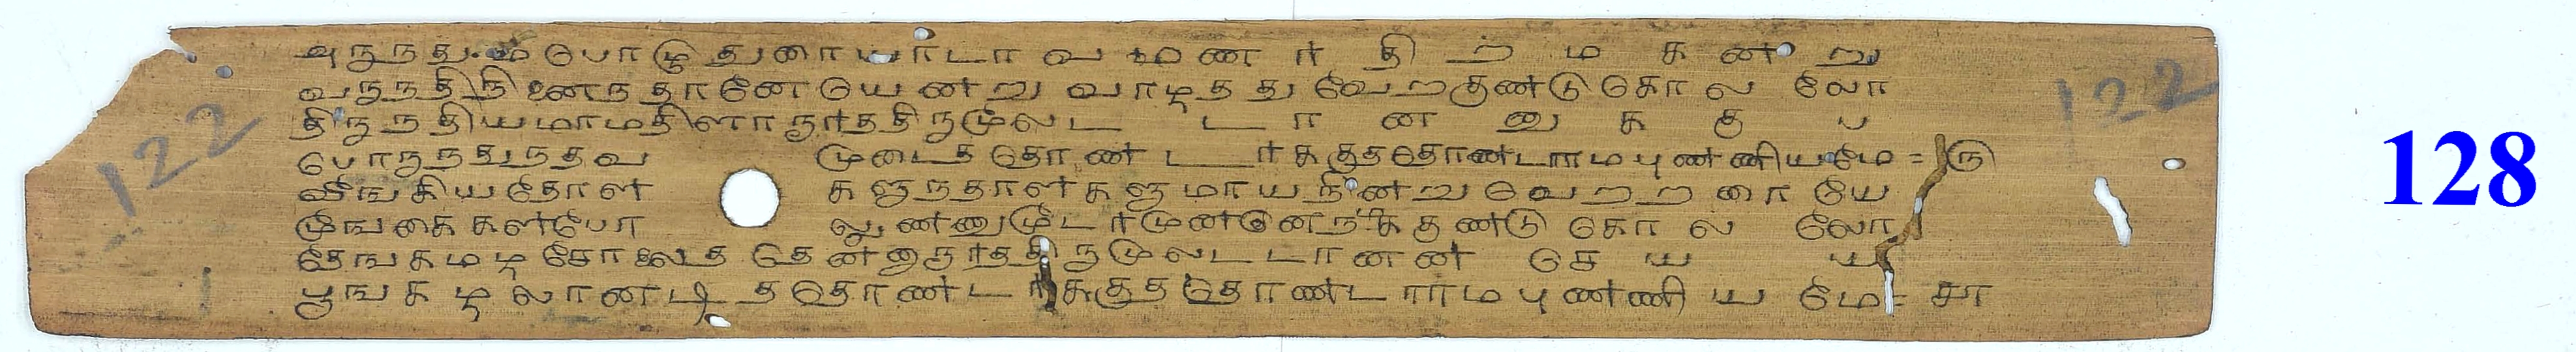 அருநதுமபொழுதுரையாடாவமணர திறமகனறு
வருநதிநினைநதானேயெனறு வாழததுவேறகுணடுகொலலோ
திருநதியமாமதிளாரூரததிருமூலட டானனுககுப
பொருநதுநதவ முடைததொணடரககுததொணடராமபுணணியமே = ௫
வீஙகியதோள களுநதாளகளுமாயநினறுவெறறரையே
மூஙகைகளபோ லுணணுமூடரமுனனேநமககுணடுகொலலோ
தேஙகமழசோலைத தெனனாரூரததிருமூலடடானன செயய
பூஙகழலானடித தொணடரககுததொணடராமபுணணியமே = ௬
122
122
128